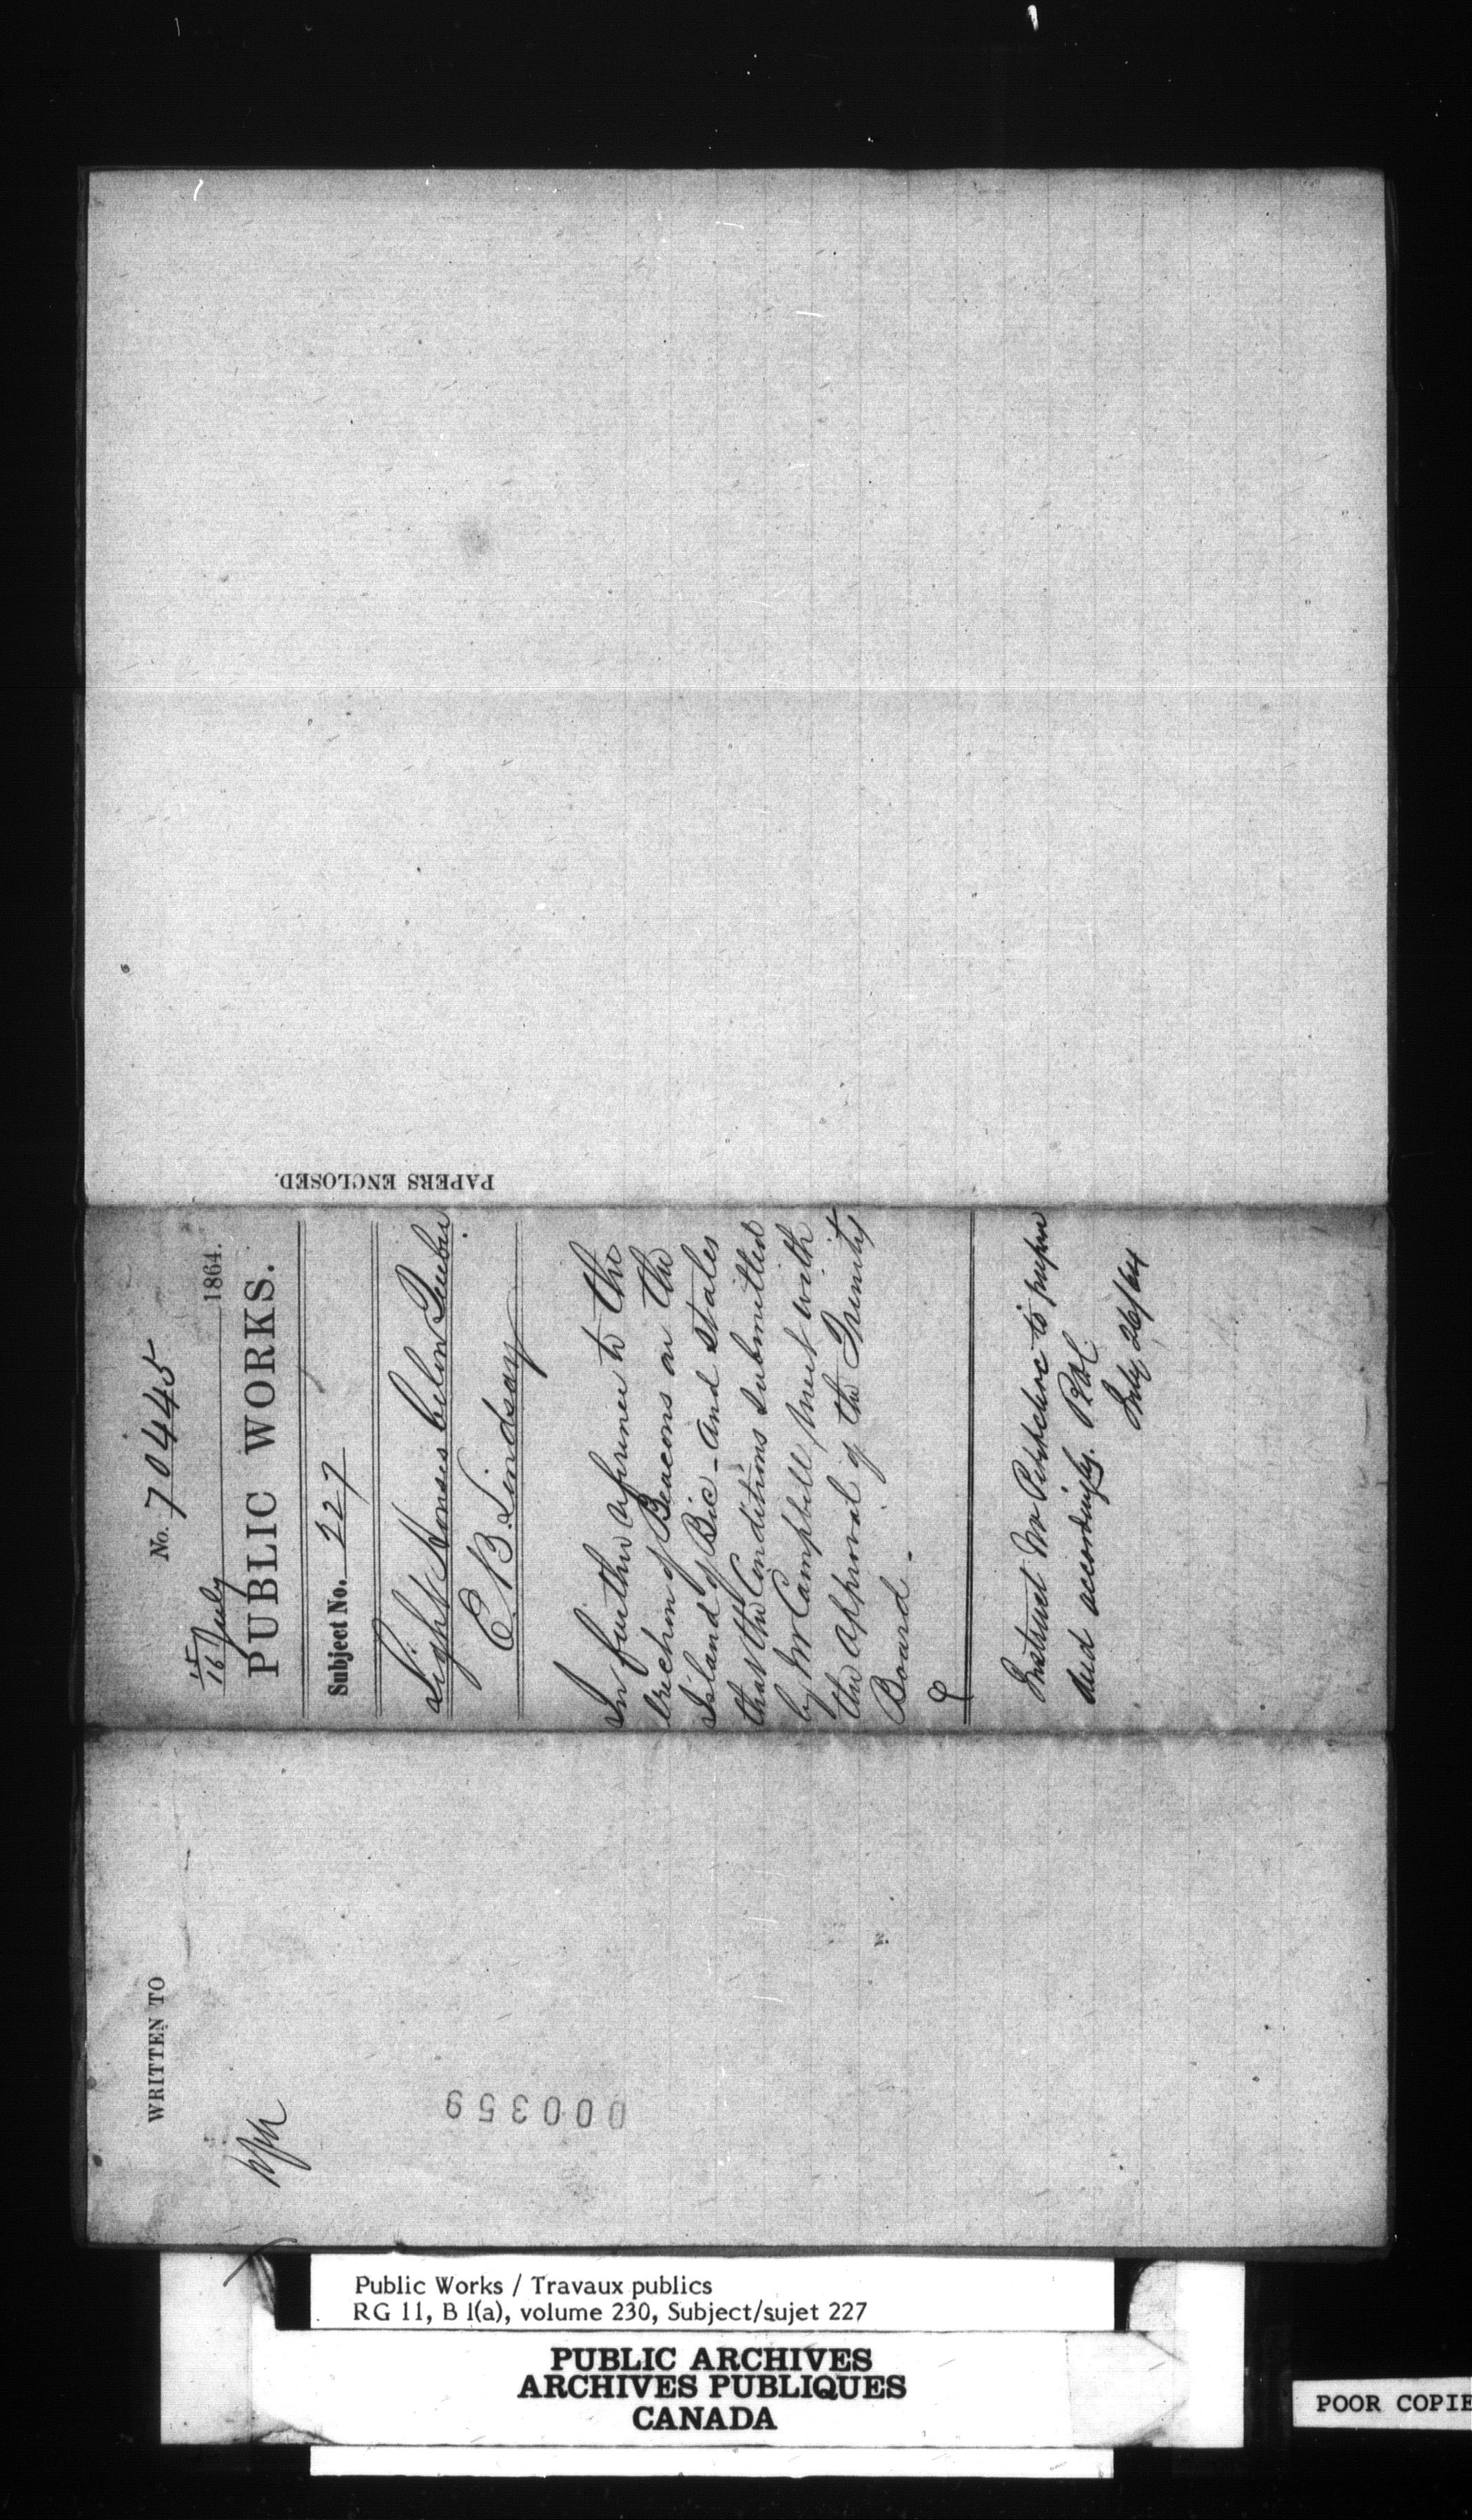 No. 70445
15/16 July 1864.
PUBLIC WORKS.
Subject No. 227
Light Houses below Quebec
E. B. Lindsay
In further reference to the
erection of Beacons on the
Island of Bic - and states
that the Conditions submitted
by Mr Campbell, meet with
the approval of the Trinity
Board -
Instruct Mr to prepare
deed accordingly.
July 26/64
PAPERS ENCLOSED.
WRITTEN TO
000359
Public Works / Travaux publics
RG 11, B 1(a), volume 230, Subject/sujet 227
PUBLIC ARCHIVES
ARCHIVES PUBLIQUES
CANADA
POOR COPIE